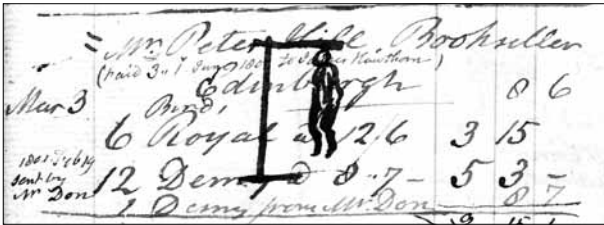 = Mr. Peter Hill Bookseller
(Paid 3 1801 to Hawthorn)
Edinburgh 8 6
Mar 3 Bird,
6 Royal a 12/6 3 15
1801 Feb 19
sent by
Mr Don
12 Demy @ 8..7 - 5 3 -
1 Demy from Mr. Don 8 7